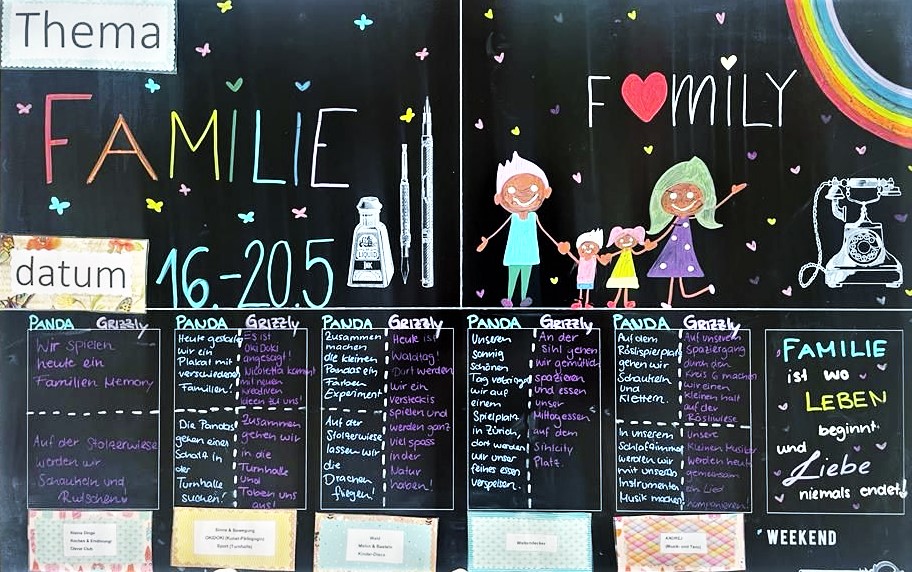 Thema
FAMILIE
FAMILY
LIQUID
INK
datum
16.-20.5
PANDA GRIZZLY
Wir spielen
heute ein
Familien Memory
Auf der Stolzerwiese
werden wir
Schaukeln und
Rutschen
PANDA GRIZZLY
Heute
wir ein
Plakat mit
verschiedenen
Familien!
Die Pandas
gehen einen
Schatz in
der
Turnhalle
suchen!
Es ist
OkiDoki
angesagt!
Nicoletta kommt
mit neuen
kreativen
Ideen zu uns!
Zusammen
gehen wir
in die
Turnhalle
und
Toben uns
aus!
PANDA GRIZZLY
Zusammen
machen
die kleinen
Pandas ein
Farben
Experiment
Auf der
Stolzerwiese
lassen wir
die
Drachen
fliegen!
Heute ist
Waldtag!
Dort werden
wir ein
versteckis
spielen und
werden ganz
viel spass
in der
Natur
haben!
PANDA GRIZZLY
Unseren
sonnig
schönen
Tag verbringen
wir auf
einem
Spielplatz
in Zürich,
dort werden
wir unser
feines essen
verspeisen.
An der
Sihl gehen
wir gemütlich
spazieren
und essen
unser
Mittagessen
auf dem
Sihlcity
Platz.
PANDA GRIZZLY
Auf dem
Röslispielplatz
gehen wir
Schaukeln
und
Klettern.
In unserem
Schlafzimmer
werden wir
mit unseren
Instrumenten
Musik machen!
Auf unserem
Spaziergang
durch den
Kreis 6 machen
wir einen
kleinen halt
auf der
Rösliwiese
Unsere
kleinen Musiker
werden heute
gemeinsam
ein Lied
komponieren.
FAMILIE
ist wo
LEBEN
beginnt
und
Liebe
niemals endet!
Sinne & Bewegung
OKIDOKI (Kunst-Pädagogin)
Sport (Turnhalle)
Wald
Malen & Basteln
Kinder-Disco
(Musik- und Tanz)
WEEKEND